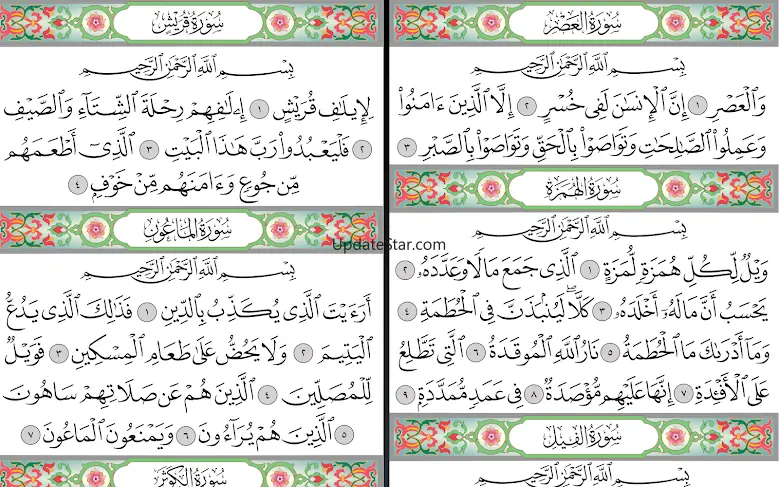 سُورَةُ العَصْرِ
بِسْمِ ٱللَّهِ ٱلرَّحْمَٰنِ ٱلرَّحِيمِ
وَٱلْعَصْرِ ١ إِنَّ ٱلْإِنسَٰنَ لَفِى خُسْرٍ ٢ إِلَّا ٱلَّذِينَ ءَامَنُوا۟
وَعَمِلُوا۟ ٱلصَّٰلِحَٰتِ وَتَوَاصَوْا۟ بِٱلْحَقِّ وَتَوَاصَوْا۟ بِٱلصَّبْرِ ٣
سُورَةُ الهُمَزَةِ
بِسْمِ ٱللَّهِ ٱلرَّحْمَٰنِ ٱلرَّحِيمِ
وَيْلٌ لِّكُلِّ هُمَزَةٍ لُّمَزَةٍ ١ ٱلَّذِى جَمَعَ مَالًا وَعَدَّدَهُۥ ٢
يَحْسَبُ أَنَّ مَالَهُۥٓ أَخْلَدَهُۥ ٣ كَلَّا ۖ لَيُنۢبَذَنَّ فِى ٱلْحُطَمَةِ ٤
وَمَآ أَدْرَىٰكَ مَا ٱلْحُطَمَةُ ٥ نَارُ ٱللَّهِ ٱلْمُوقَدَةُ ٦ ٱلَّتِى تَطَّلِعُ
عَلَى ٱلْأَفْـِٔدَةِ ٧ إِنَّهَا عَلَيْهِم مُّؤْصَدَةٌ ٨ فِى عَمَدٍ مُّمَدَّدَةٍۭ ٩
سُورَةُ الفِيلِ
بِسْمِ ٱللَّهِ ٱلرَّحْمَٰنِ ٱلرَّحِيمِ
سُورَةُ قُرَيْشٍ
بِسْمِ ٱللَّهِ ٱلرَّحْمَٰنِ ٱلرَّحِيمِ
لِإِيلَٰفِ قُرَيْشٍ ١ إِۦلَٰفِهِمْ رِحْلَةَ ٱلشِّتَآءِ وَٱلصَّيْفِ
٢ فَلْيَعْبُدُوا۟ رَبَّ هَٰذَا ٱلْبَيْتِ ٣ ٱلَّذِىٓ أَطْعَمَهُم
مِّن جُوعٍ وَءَامَنَهُم مِّنْ خَوْفٍۭ ٤
سُورَةُ المَاعُونِ
بِسْمِ ٱللَّهِ ٱلرَّحْمَٰنِ ٱلرَّحِيمِ
أَرَءَيْتَ ٱلَّذِى يُكَذِّبُ بِٱلدِّينِ ١ فَذَٰلِكَ ٱلَّذِى يَدُعُّ
ٱلْيَتِيمَ ٢ وَلَا يَحُضُّ عَلَىٰ طَعَامِ ٱلْمِسْكِينِ ٣ فَوَيْلٌ
لِّلْمُصَلِّينَ ٤ ٱلَّذِينَ هُمْ عَن صَلَاتِهِمْ سَاهُونَ
٥ ٱلَّذِينَ هُمْ يُرَآءُونَ ٦ وَيَمْنَعُونَ ٱلْمَاعُونَ ٧
سُورَةُ الكَوْثَرِ
UpdateStar.com